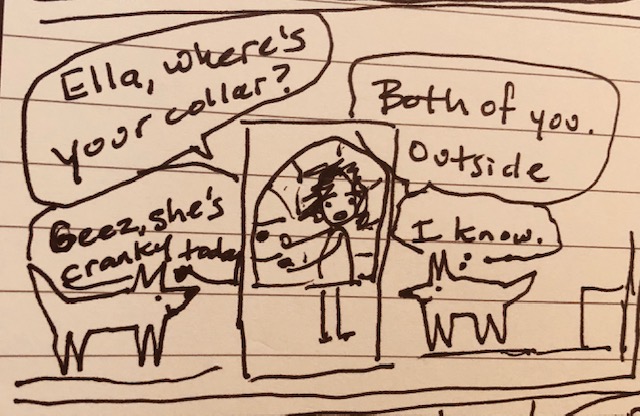 Ella, where's
your collar?
Both of you.
Outside
Geez, she's
cranky today
I know.